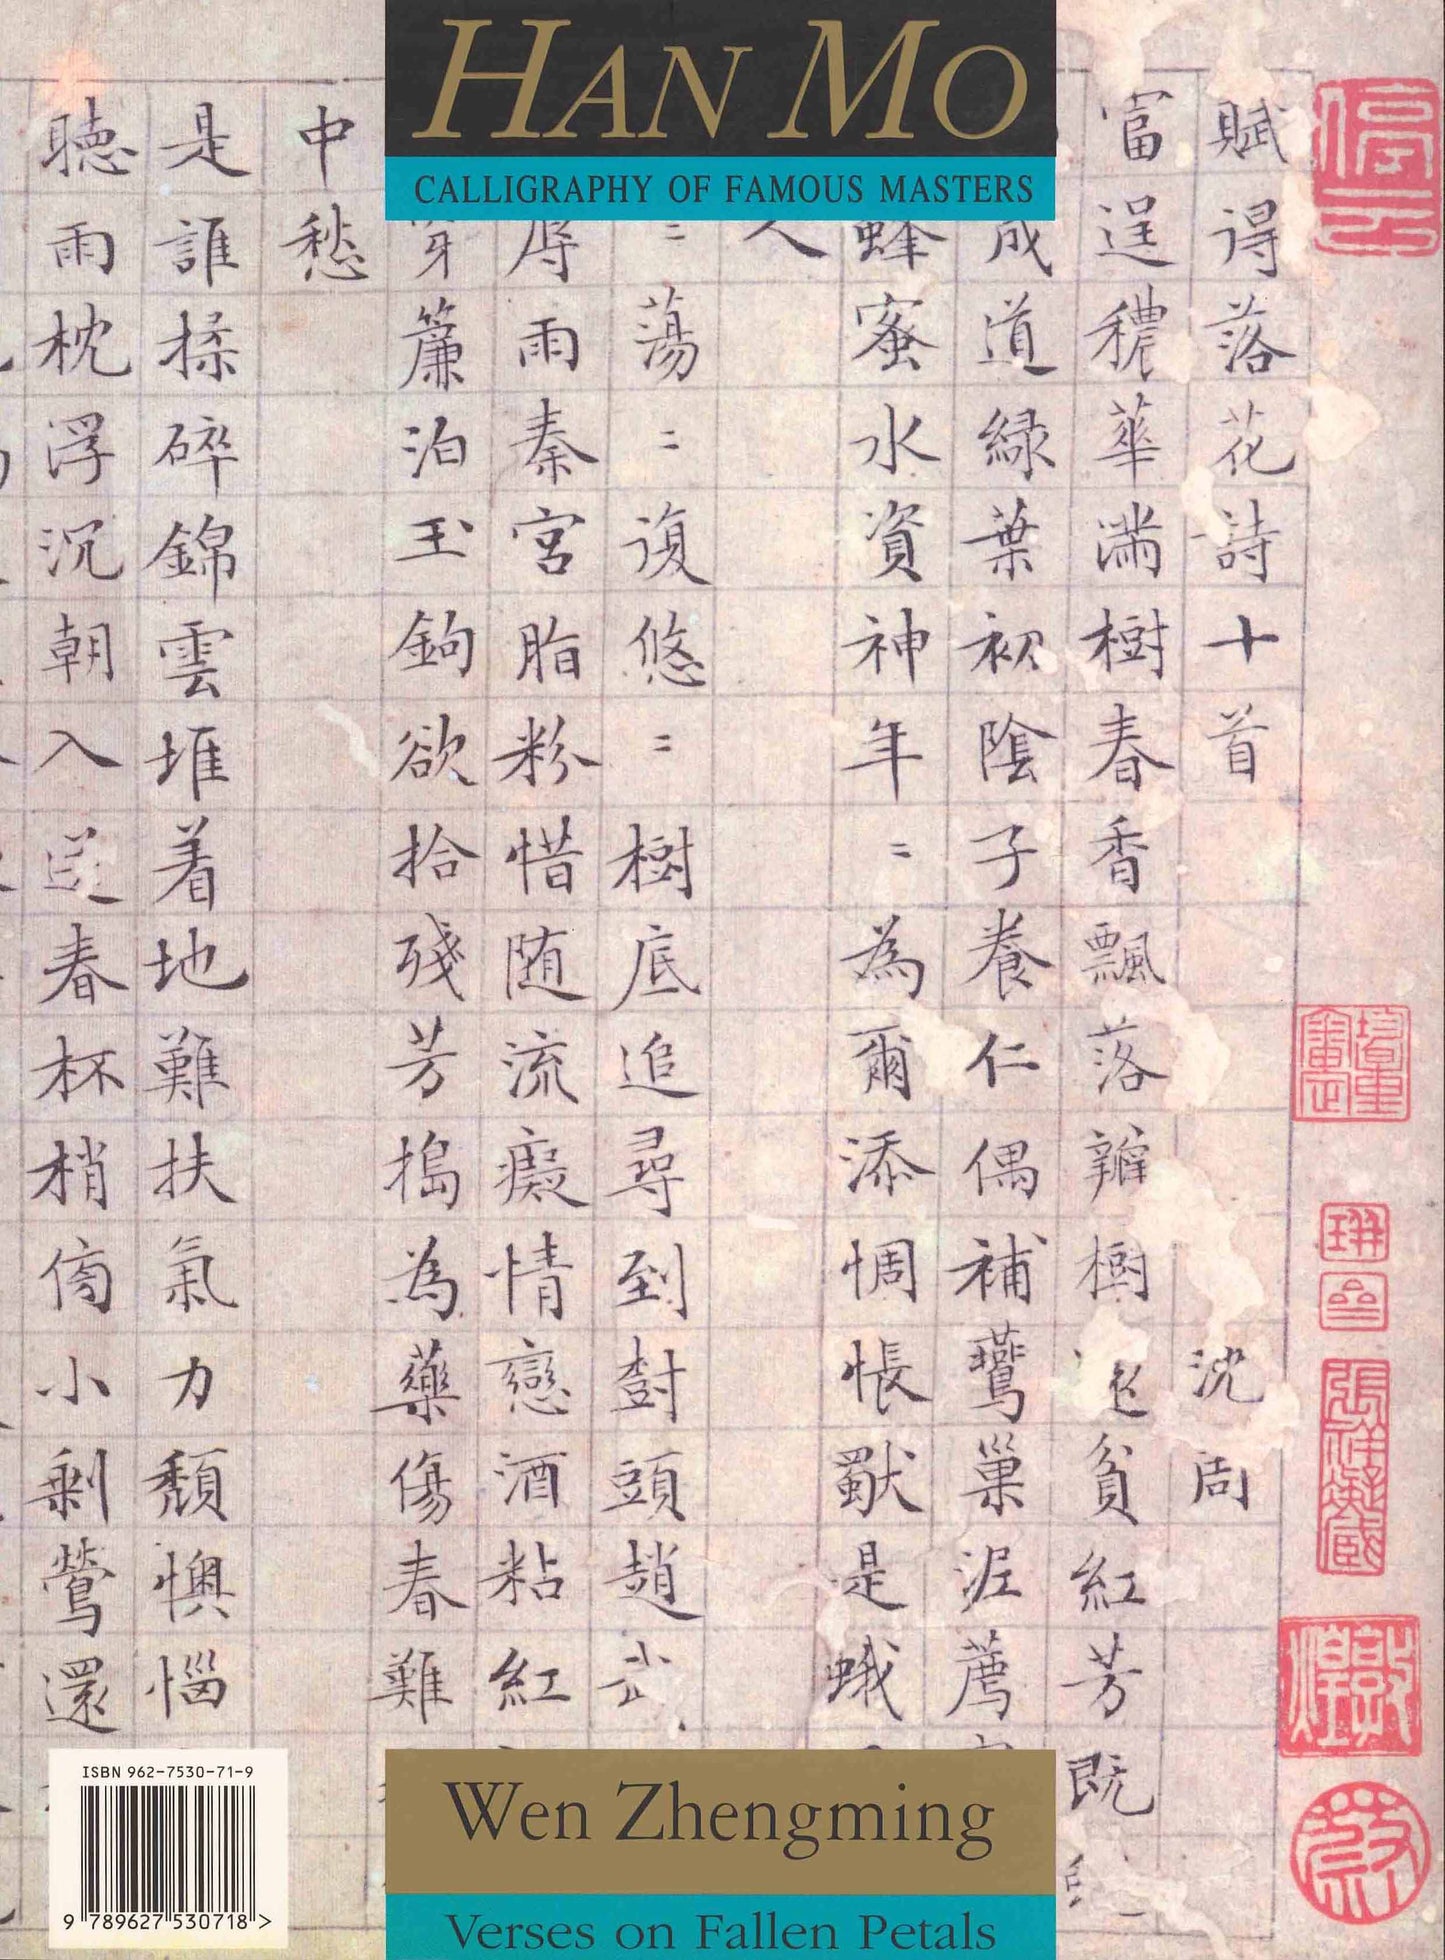 HAN MO
CALLIGRAPHY OF FAMOUS MASTERS
賦得落花詩十首 沈周
富逞穠華滿樹春香飄落瓣樹貧紅芳既
成道綠葉初陰子養仁偶補鷰巢泥薦
蜂蜜水資神年〻為爾添惆悵獨是蛾
人
〻蕩〻復悠〻樹底追尋到樹頭趙武
辱雨秦宮脂粉惜随流癡情戀酒粘紅
穿簾泊玉鉤欲拾殘芳搗為藥傷春難
中愁
是誰揉碎錦雲堆着地難扶氣力頹懊惱
聽雨枕浮沉朝入送春杯梢傍小剩鶯還
Wen Zhengming
Verses on Fallen Petals
ISBN 962-7530-71-9
9 789627 530718 >